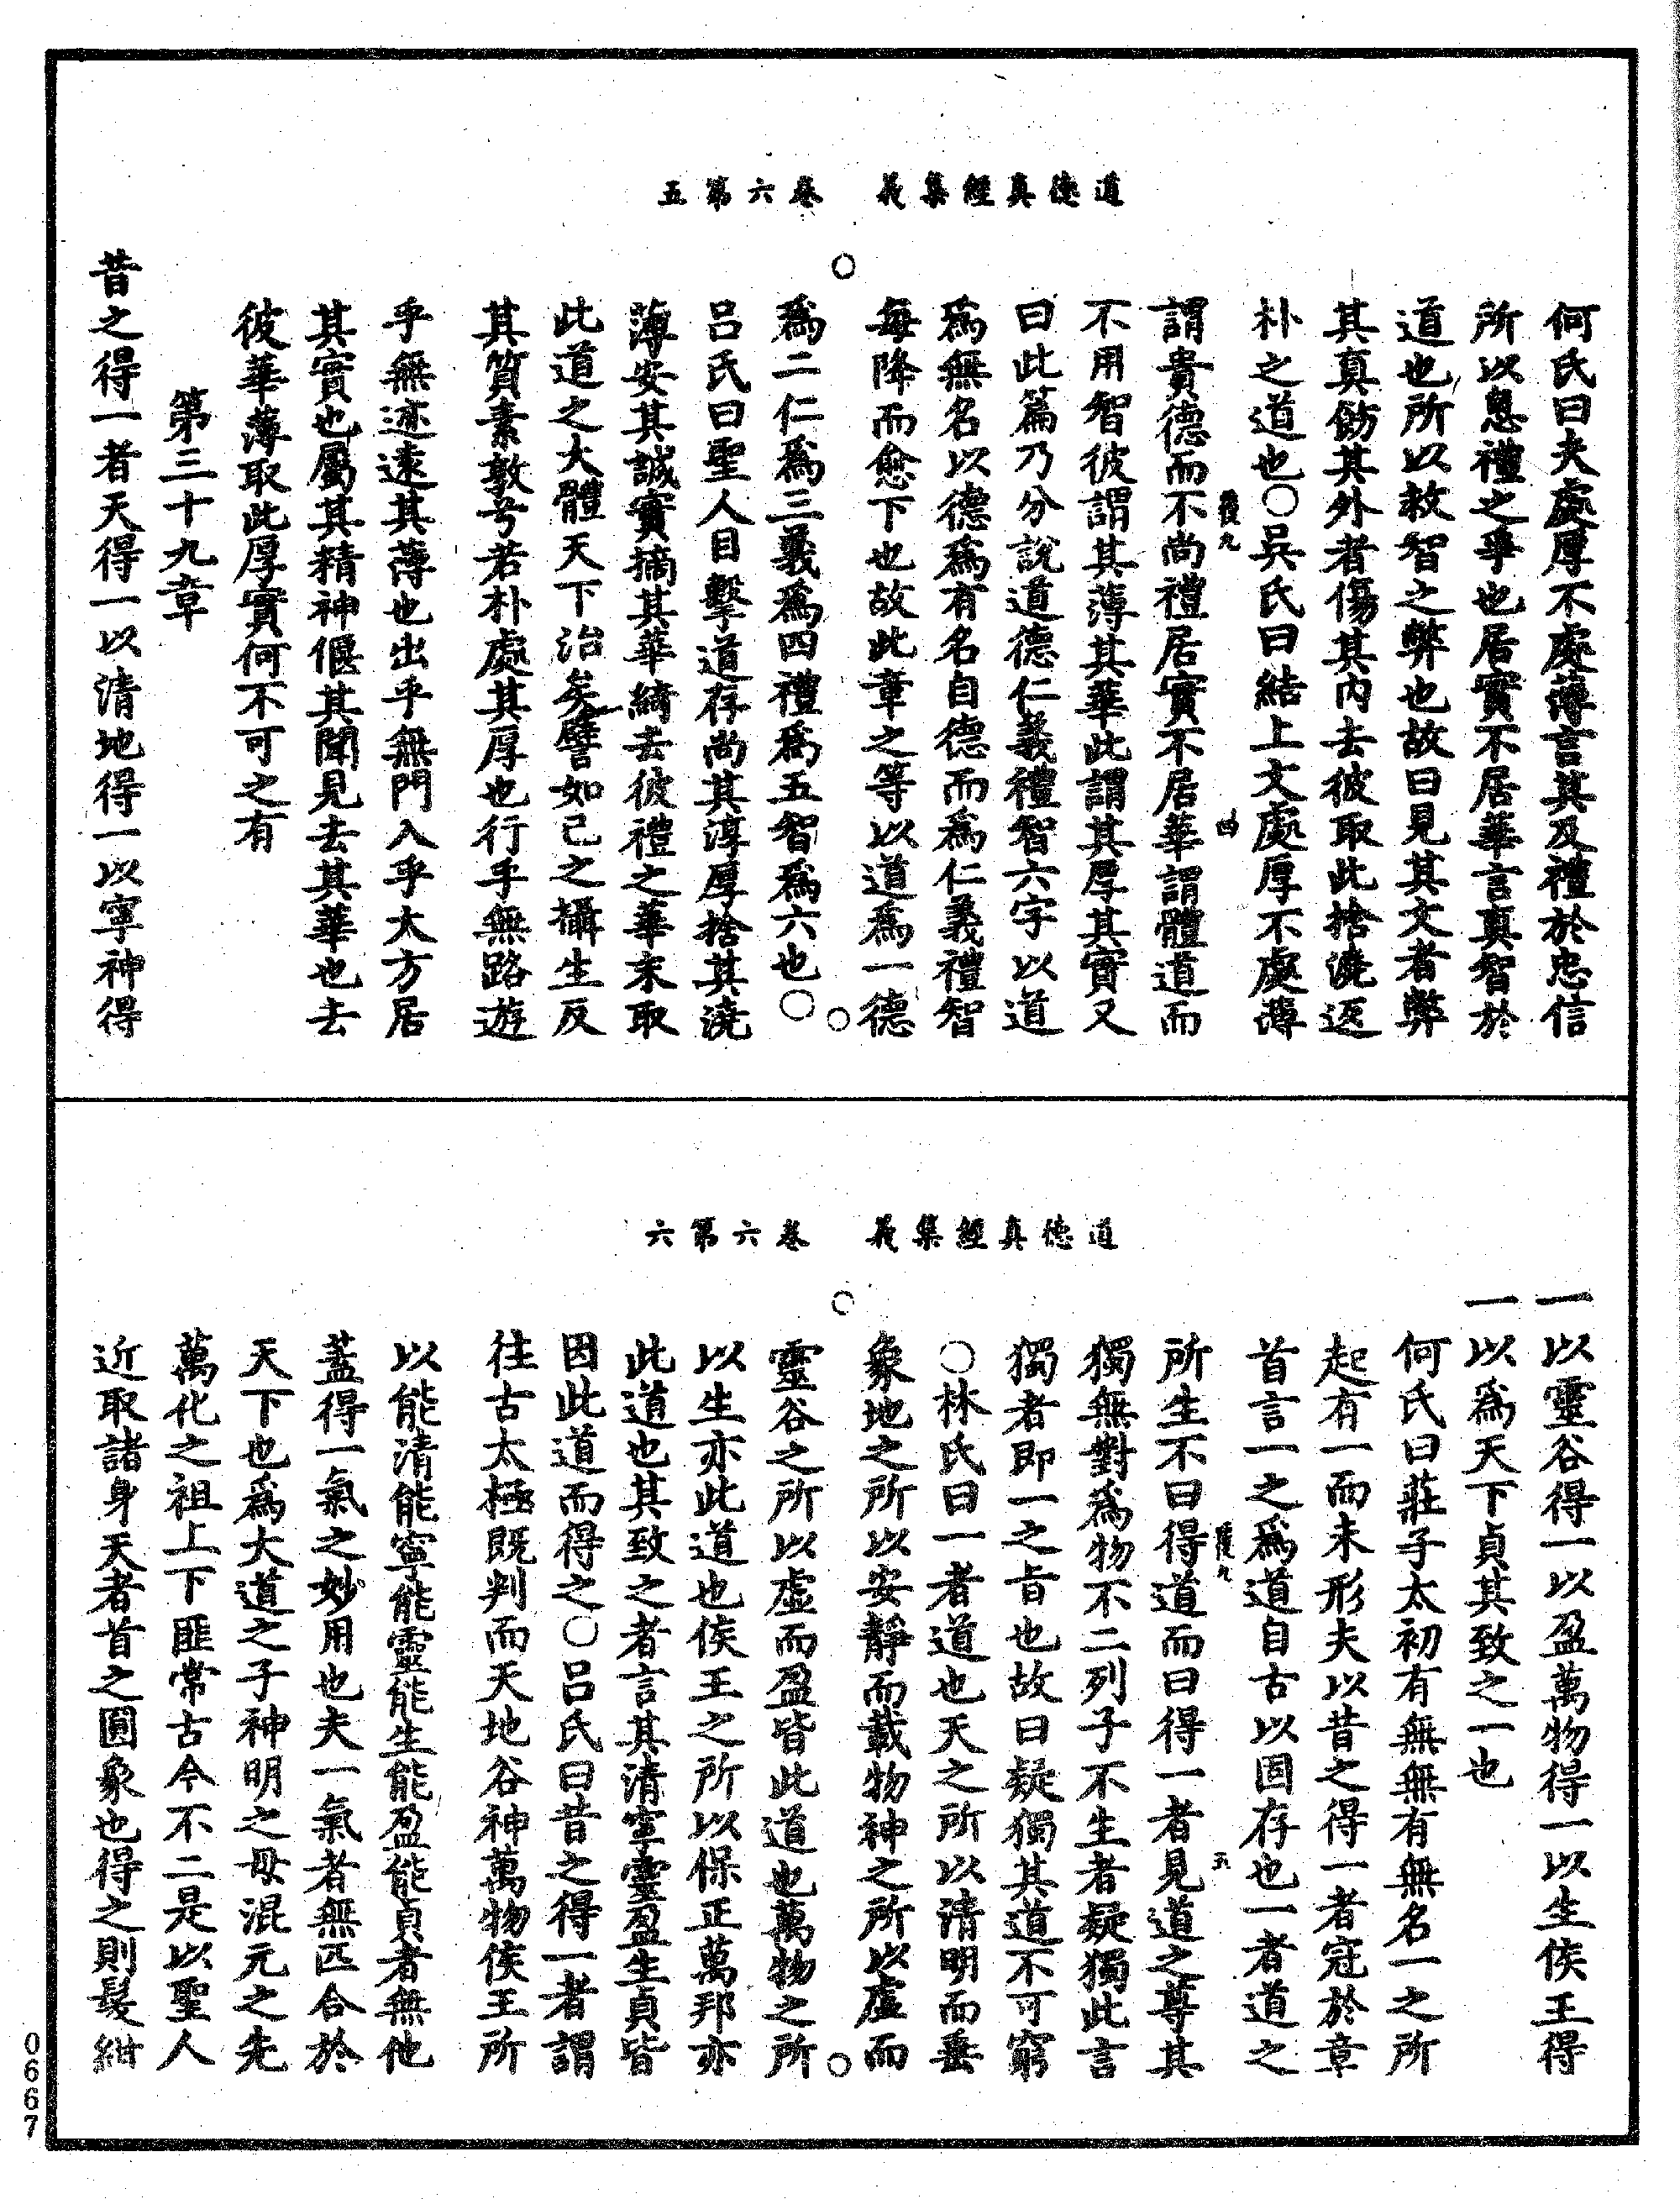 道德真經集義　卷六第五
何氏曰夫處厚不處薄言其及禮於忠信
所以息禮之爭也居實不居華言真智於
道也所以救智之弊也故曰見其文者弊
其真飭其外者傷其內去彼取此捨澆返
朴之道也○吳氏曰結上文處厚不處薄
謂貴德而不尚禮居實不居華謂體道而
不用智彼謂其薄其華此謂其厚其實又
曰此篇乃分說道德仁義禮智六字以道
為無名以德為有名自德而為仁義禮智
每降而愈下也故此章之等以道為一德
為二仁為三義為四禮為五智為六也○
呂氏曰聖人目擊道存尚其淳厚捨其澆
薄安其誠實摘其華綺去彼禮之華末取
此道之大體天下治矣譬如己之攝生反
其質素敦兮若朴處其厚也行乎無路遊
乎無迹遠其薄也出乎無門入乎大方居
其實也屬其精神偃其聞見去其華也去
彼華薄取此厚實何不可之有
第三十九章
昔之得一者天得一以清地得一以寧神得
道德真經集義　卷六第六
一以靈谷得一以盈萬物得一以生侯王得
一以為天下貞其致之一也
何氏曰莊子太初有無無有無名一之所
起有一而未形夫以昔之得一者冠於章
首言一之為道自古以固存也一者道之
所生不曰得道而曰得一者見道之尊其
獨無對為物不二列子不生者疑獨此言
獨者即一之旨也故曰疑獨其道不可窮
○林氏曰一者道也天之所以清明而垂
象地之所以安靜而載物神之所以虛而
靈谷之所以虛而盈皆此道也萬物之所
以生亦此道也侯王之所以保正萬邦亦
此道也其致之者言其清寧靈盈生貞皆
因此道而得之○呂氏曰昔之得一者謂
往古太極既判而天地谷神萬物侯王所
以能清能寧能靈能生能盈能貞者無他
蓋得一氣之妙用也夫一氣者無匹合於
天下也為大道之子神明之母混元之先
萬化之祖上下匪常古今不二是以聖人
近取諸身天者首之圓象也得之則髮紺
0667